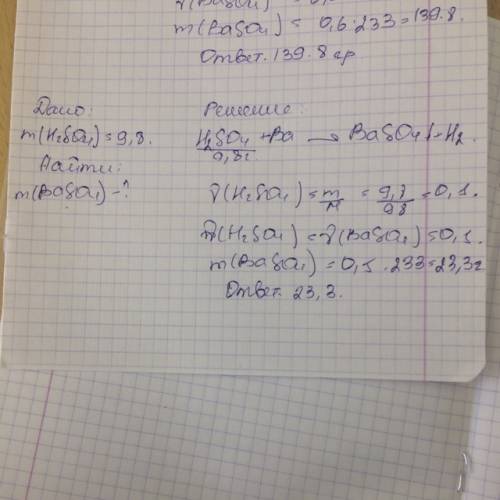 m(BaSO₄) = 0,6·233=139.8.
Ответ. 139.8 гр
Дано:
m(H₂SO₄)=9,8.
Найти:
m(BaSO₄)-?
Решение:
H₂SO₄ + Ba → BaSO₄↓+H₂
9,8г
ν(H₂SO₄) = m/M = 9,8/98 = 0,1.
ν(H₂SO₄) = ν(BaSO₄) = 0,1.
m(BaSO₄) = 0,1 · 233=23,3г
Ответ. 23,3.